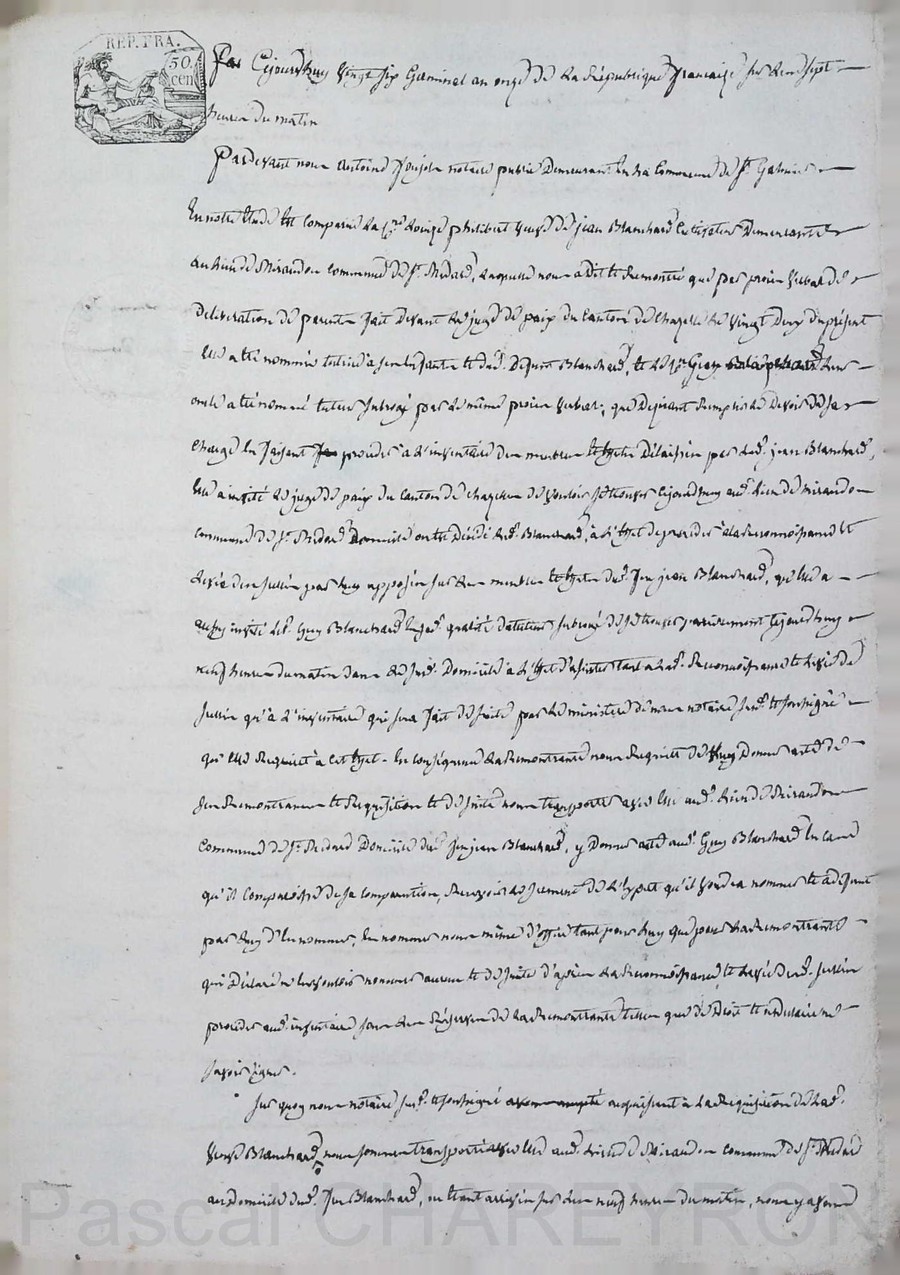 REP. FRA.
50. cen
Cejourdhuy vingt six Germinal an onze de la République française sur les sept
heures du matin
Pardevant nous Antoine notaire public Demeurant en la Commune de St. Galmier
En notre Etude est comparüe la Cne. Louise philibert veuve de jean Blanchard Cultivateur Demeurante
au lieu de Mirandon commune de St. Medard, laquelle nous a dit et Remontré que par procès verbal de
deliberation de parents fait devant le juge de paix du Canton de Chazelle le vingt Deux du présent
elle a été nommée tutrice a ses Enfants et dud. Defunt Blanchard, et le Sr. Guy
oncle a été nommé tuteur subrogé par le même procès verbal; que Desirant Remplir le Devoir de sa
charge En faisant proceder à l'inventaire des meubles et effets Délaissés par led. jean Blanchard,
Elle a invité le juge de paix du Canton de chazelles de vouloir se trouver cejourdhuy aud. Lieu de mirandon
commune de St. Medard Domicile ou est Décédé led. Blanchard, à l'effet de proceder à la Reconnoissance et
levée des scellés par luy apposés sur les meubles et effets dud. feu jean Blanchard, qu'elle a
aussy invité led. Guy Blanchard En sad. qualité de tuteur subrogé de se trouver pareillement cejourdhuy
neuf heures du matin dans le susd. Domicile à l'effet d'assister tant a lad. Reconnoissance et levée de
scellés qu'à l'inventaire qui sera fait de suite par le ministere de nous notaire susd. et soussigné
qu'elle Requiert à cet effet. En conséquence la Remontrante nous Requiert de luy Donner acte de
ses Remontrances et Requisition et de suite nous transporter avec elle aud. Lieu de Mirandon
Commune de St. Medard Domicile dud. feu jean Blanchard, y Donner acte aud. Guy Blanchard En cas
qu'il comparoisse de sa comparution, Recevoir le serment de l'expert qu'il voudra nommer et a défaut
par luy d'en nommer, En nommer nous même d'office tant pour luy que pour la Remontrante
qui Déclare n'en vouloir nommer aucun et de suite d'après la Reconnoissance et levée desd. scellés
proceder aud. inventaire sous les Réserves de la Remontrante telles que de Droit et a déclaré ne
savoir signer.
Sur quoy nous notaire susd. et soussigné acquiesçant à la Requisition de lad.
veuve Blanchard, nous sommes transporté avec elle aud. lieu de Mirandon commune de St. Medard
au Domicile dud. feu Blanchard, ou étant arrivés sur les neuf heures du matin, nous y avons
Pascal CHAREYRON